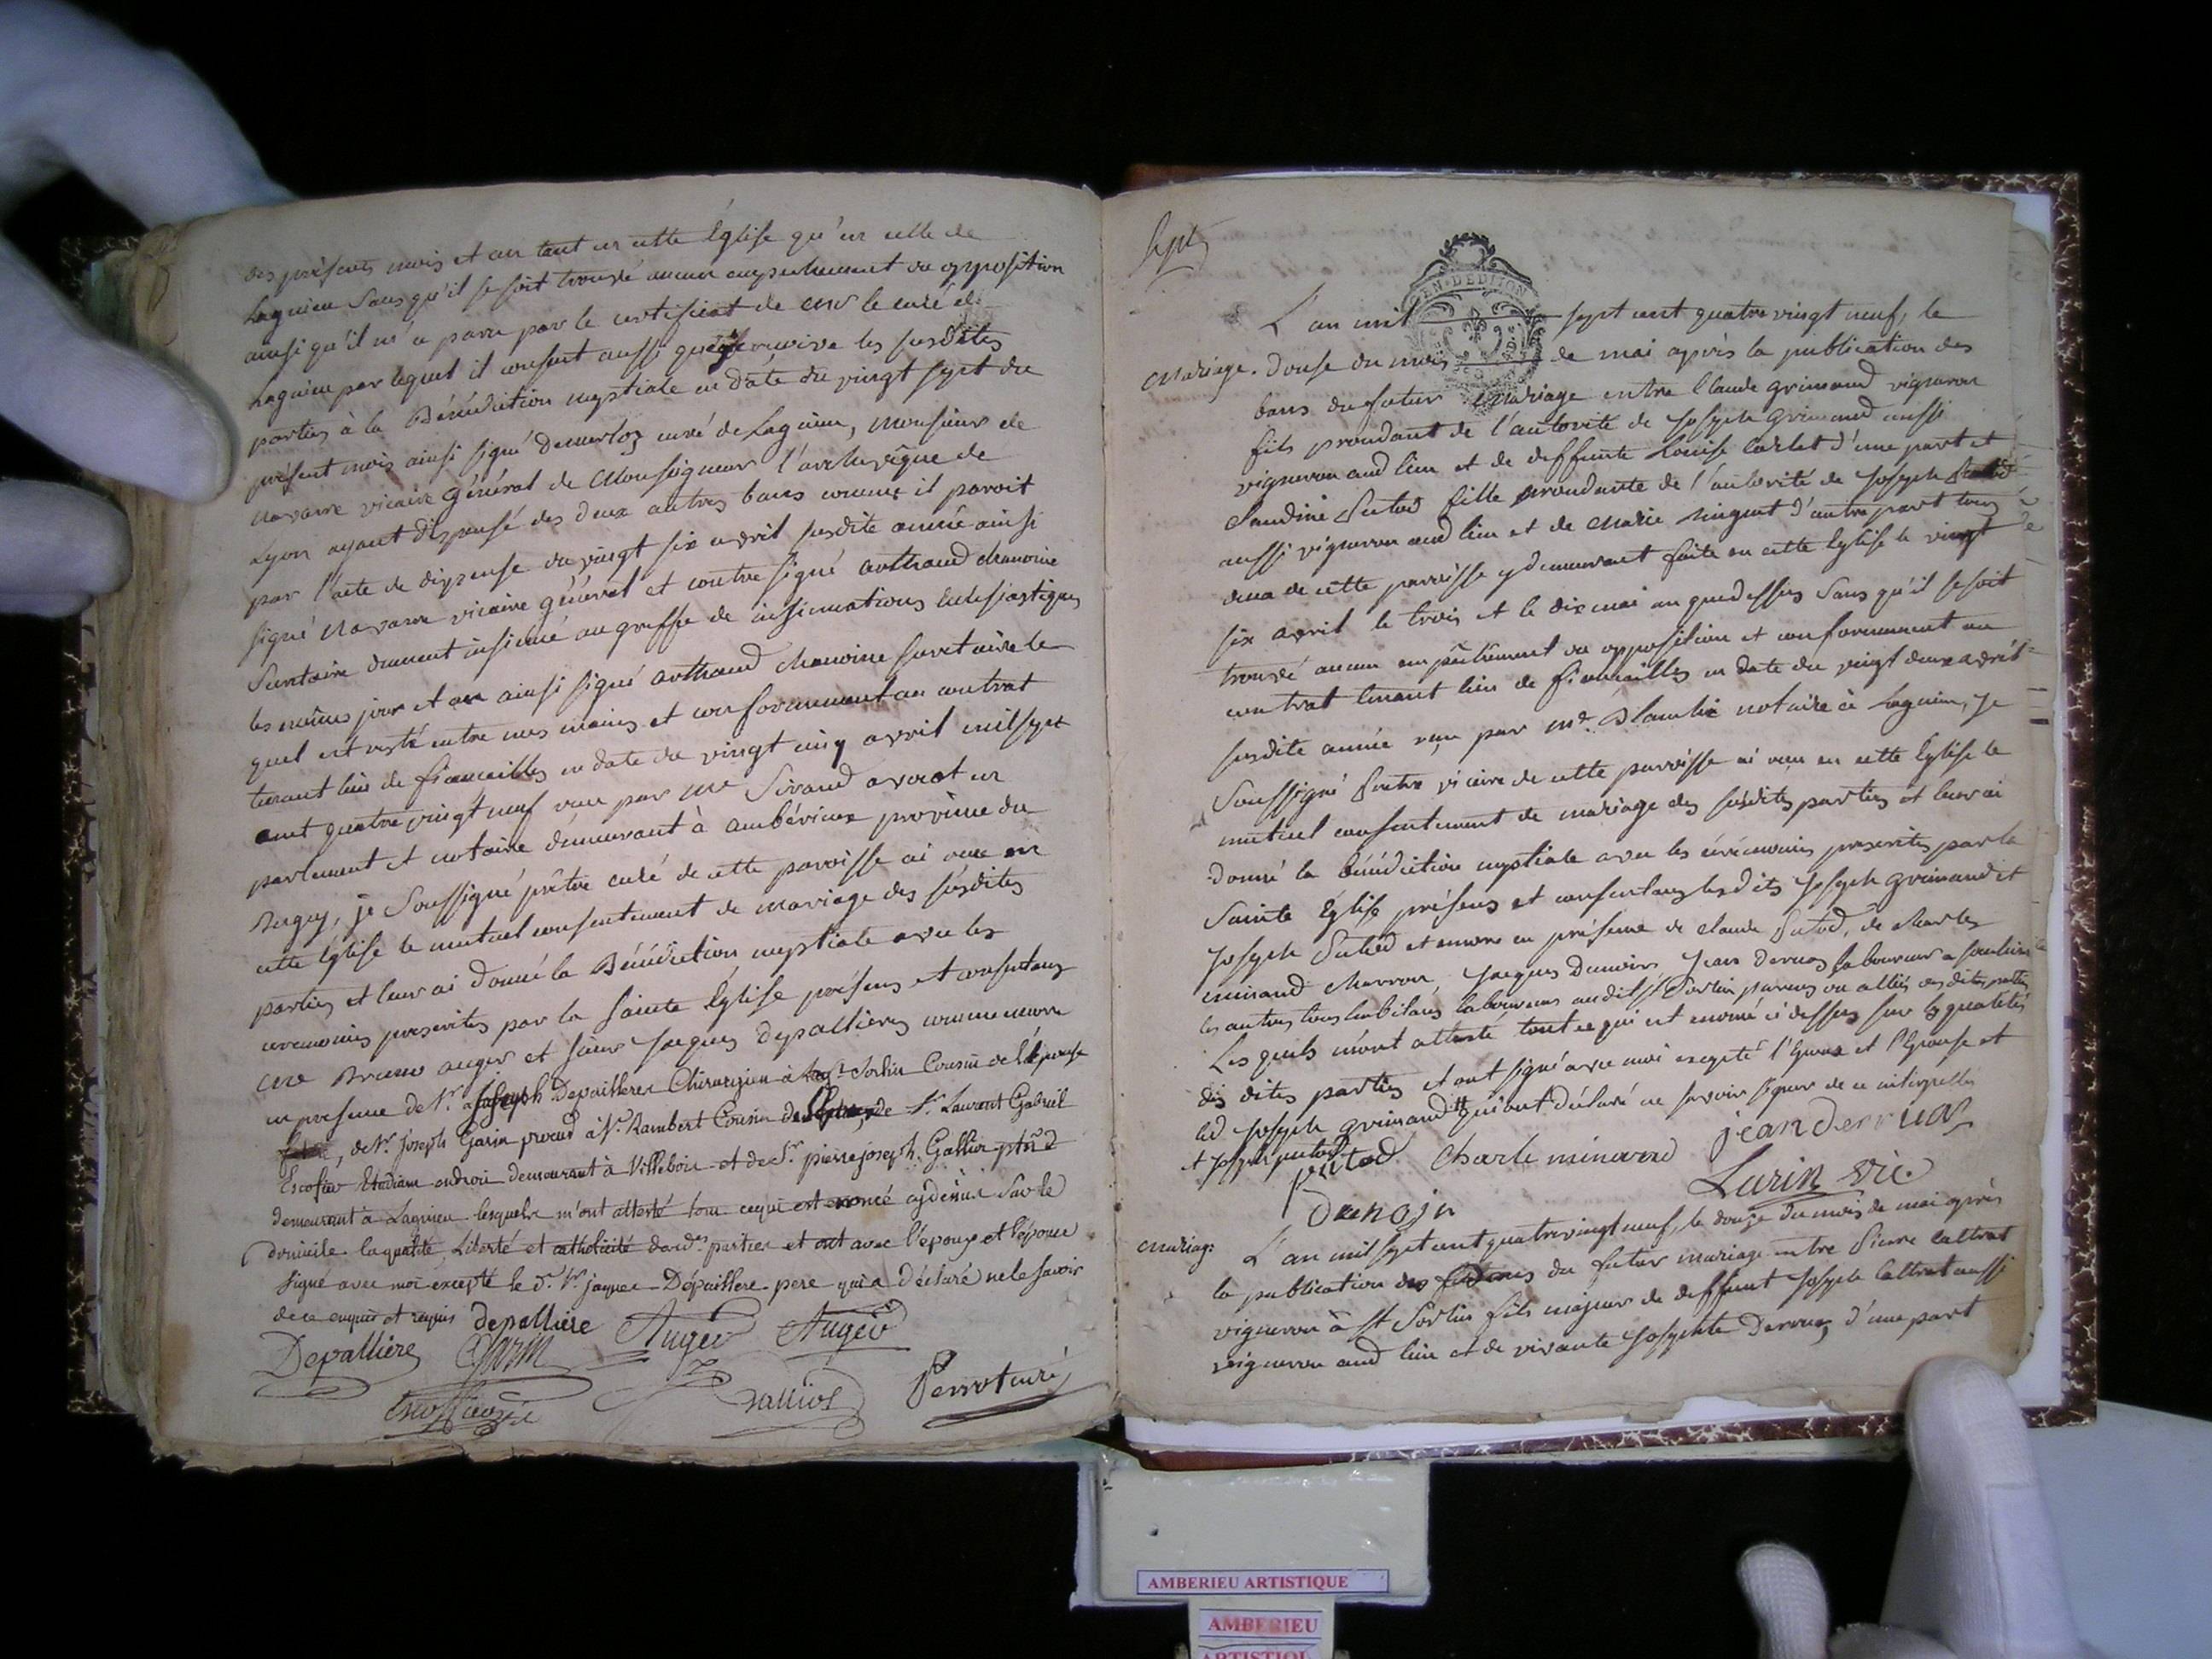 des présents mois et an tant en cette Eglise qu'en celle de
Lagnieu Sans qu'il se soit trouvé aucun empechement ou opposition
ainsi qu'il m'a paru par le certificat de Mr le curé de
Lagnieu par lequel il consent aussi que je reçoive les susdites
parties à la Bénédiction nuptiale en date du vingt sept du
présent mois ainsi signé curé de Lagnieu, Monsieur de
Navarre vicaire général de Monseigneur l'archevêque de
Lyon ayant dispensé des deux autres bans comme il paroit
par l'acte de dispense du vingt six avril susdite année ainsi
signé Navarre vicaire général et contre signé arthaud chanoine
Secretaire duement insinué au greffe de insinuations Ecclesiastiques
les mêmes jour et an ainsi signé arthaud chanoine secretaire le
quel est resté entre mes mains et conformement au contrat
tenant lieu de fiançailles en date du vingt cinq avril mil sept
cent quatre vingt neuf reçu par Me Sirand avocat en
parlement et notaire demeurant à ambérieux province du
Bugey, je Soussigné prêtre curé de cette paroisse ai reçu en
cette Eglise le mutuel consentement de mariage des susdites
parties et leur ai donné la Bénédiction nuptiale avec les
ceremonies prescrites par la Sainte Eglise présens et consentans
Bruno auger et sieur Jacques depallieres comme encore
en presence de Sr. joseph Depaillere Chirurgien à St Sorlin Cousin de l'épouse
de Sr. joseph Garin à St. Rambert Cousin de de Sr. Laurant Gabriel
Escofier Etudiant endroit demeurant à Villebois et de Sr. pierre joseph Gallier
demeurant à Lagnieu lesquels m'ont attesté tout cequi est enoncé cydessus sur le
domicile la qualité, Liberté et catholicité desd. parties et ont avec l'epoux et l'épouse
signé avec moi excepté le d. Sr. jaques Dépaillere pere qui a déclaré ne le savoir
de ce enquis et requis depalliere
Depalliere Garin Auger Auger
Perrot curé

L'an mil sept cent quatre vingt neuf, le
Mariage. Douse du mois de mai après la publication des
bans du futur Mariage entre Claude grimaud vigneron
fils procédant de l'autorité de Joseph Grimaud aussi
vigneron aud lieu et de deffunte Louise d'une part et
Claudine Putod fille procédante de l'autorité de Joseph
aussi vigneron aud lieu et de Marie d'autre part tous
deux de cette paroisse y demeurant faite en cette Eglise le vingt
six avril le trois et le dix mai an que dessus Sans qu'il se soit
trouvé aucun empêchement ou opposition et conformement au
contrat tenant lieu de fiançailles en date du vingt deux avril
susdite année reçu par Me. notaire à Lagnieu, Je
Soussigné Prêtre vicaire de cette paroisse ai reçu en cette Eglise le
mutuel consentement de mariage des susdites parties et leur ai
donné la bénédiction nuptiale avec les cérémonies prescrites par la
Sainte Eglise présens et consentans lesdits Joseph grimaud et
Joseph Putod et encore en présence de claude Putod, de Charles
minand Jacques Dunoir Jean Derruas laboureur a
les autres tous habitans laboureurs audit St Sorlin parens ou alliés desdites parties
Les quels m'ont attesté tout ce qui est enoncé ci dessus sur les qualités
des dites parties et ont signé avec moi excepté l'Epoux et l'Epouse et
led Joseph grimaud qui ont déclaré ne savoir signer de ce interpellés
et Joseph putod
putod Charle minard jean derruas
Dunoir Lurin vic
Mariage L'an mil sept cent quatre vingt neuf, le douze du mois de mai après
la publication des bans du futur mariage entre Pierre Caltrat
vigneron à St Sorlin fils majeur de deffunt Joseph Caltrat aussi
vigneron aud lieu et de vivante Josephte Derruas d'une part
AMBERIEU ARTISTIQUE
AMBERIEU
ARTISTIQUE